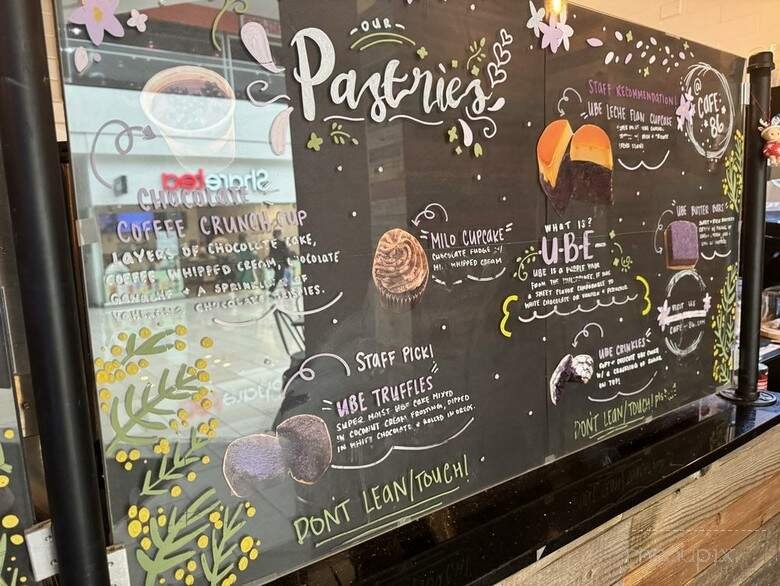 OUR
Pastries
CHOCOLATE
COFFEE CRUNCH CUP
LAYERS OF CHOCOLATE CAKE,
COFFEE WHIPPED CREAM, CHOCOLATE
GANACHE & A SPRINKLE OF
CHOCOLATE CRISPIES.
ShareTea
MILO CUPCAKE
CHOCOLATE FUDGE W/
WHIPPED CREAM
STAFF PICK!
UBE TRUFFLES
SUPER MOIST UBE CAKE MIXED
IN COCONUT CREAM FROSTING, DIPPED
IN WHITE CHOCOLATE & ROLLED IN OREOS.
DON'T LEAN/TOUCH!
STAFF RECOMMENDATION!
UBE LECHE FLAN CUPCAKE
CAFE
86
WHAT IS?
U-B-E-
UBE IS A PURPLE YAM
FROM THE PHILIPPINES. IT HAS
A SWEET FLAVOR COMPARABLE TO
WHITE CHOCOLATE OR VANILLA & PISTACHIO.
UBE BUTTER BARS
VISIT US
CAFE-86.COM
UBE CRINKLES
ON TOP!
DON'T LEAN/TOUCH!